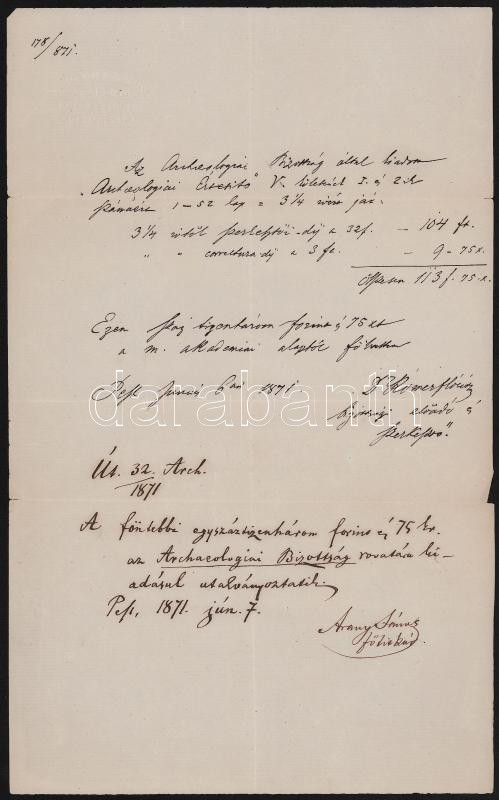 178/871.
Az Archeologiai Bizottság által kiadott
„Archeologiai Értesitő" V. kötetének 1. és 2ik
számáért 1–52 lap = 3 1/4 ívért jár.
3 1/4 ívtől szerkesztői-díj a 32f. — 104 ft.
" " correctura-díj a 3 ft. — 9 – 75 x.
összesen 113 f. 75 x.
Ezen száz tizenhárom forint és 75 xt
a m. akademiai alaptól fölvettem
Pest junius 6án 1871
Dr Rómer Flóris
bizottsági előadó és
szerkesztő.
Út. 32. Arch.
1871
A föntebbi egyszáztizenhárom forint és 75 kr.
az Archaeologiai Bizottság rovatára ki-
adásul utalványoztatik.
Pest, 1871. jún. 7.
Arany János
főtitkár.
darabanth